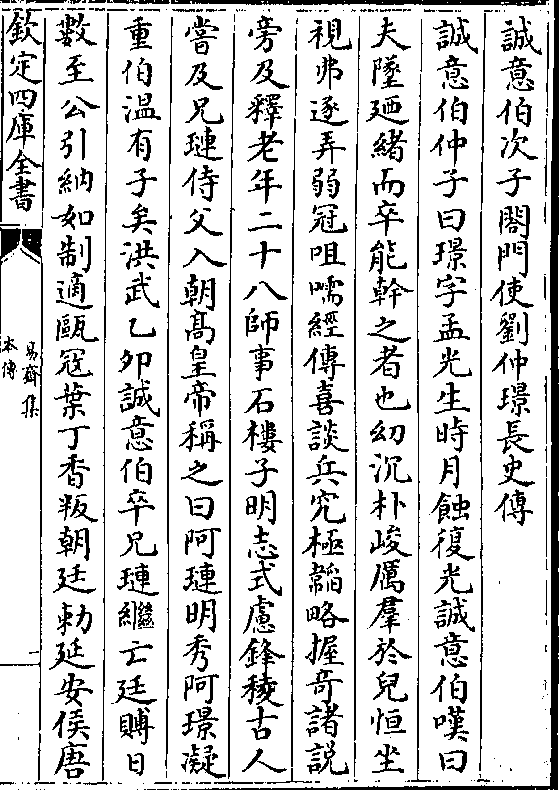 誠意伯次子閤門使劉仲璟長史傳
誠意伯仲子曰璟字孟光生時月蝕復光誠意伯嘆曰
夫墬廼緒而卒能幹之者也幼沉朴峻厲羣於兒恒坐
視弗逐弄弱冠咀嚅經傳喜談兵究極韜略握奇諸説
旁及釋老年二十八師事石樓子明志式慮鋒稜古人
嘗及兄璉侍父入朝髙皇帝稱之曰阿璉明秀阿璟凝
重伯温有子矣洪武乙夘誠意伯卒兄璉繼亡廷賻日
數至公引納如制適甌冦葉丁香叛朝廷勅延安侯唐
欽定四庫全書
易齋集
本傳
一